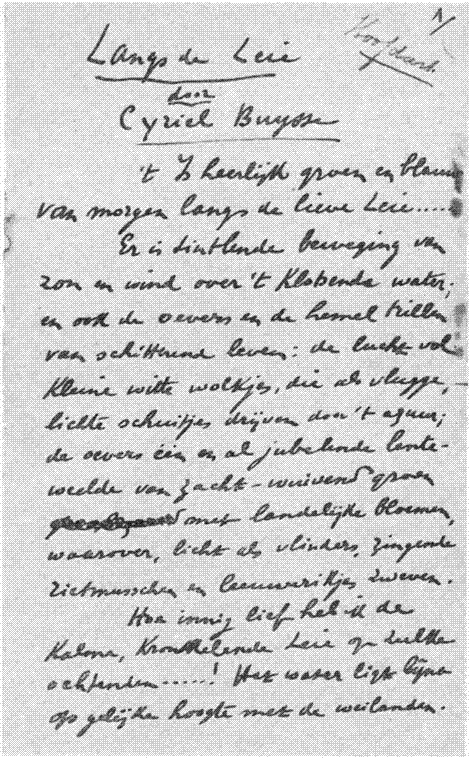 1/
Langs de Leie
door
Cyriel Buysse
't Is heerlijk groen en blauw
van morgen langs de lieve Leie.....
Er is tintlende beweging van
zon en wind over 't klotsende water;
en ook de oevers en de hemel trillen
van schitterend leven: de lucht vol
kleine witte wolkjes, die als vlugge,
lichte schuitjes drijven door 't azuur;
de oevers één en al jubelende lente-
weelde van zacht-wuivend groen
met landelijke bloemen,
waarover, licht als vlinders, zingende
rietmusschen en leeuwerikjes zweven.
Hoe innig lief heb ik de
kalme, kronkelende Leie op zulke
ochtenden.....! Het water ligt bijna
op gelijke hoogte met de weilanden.